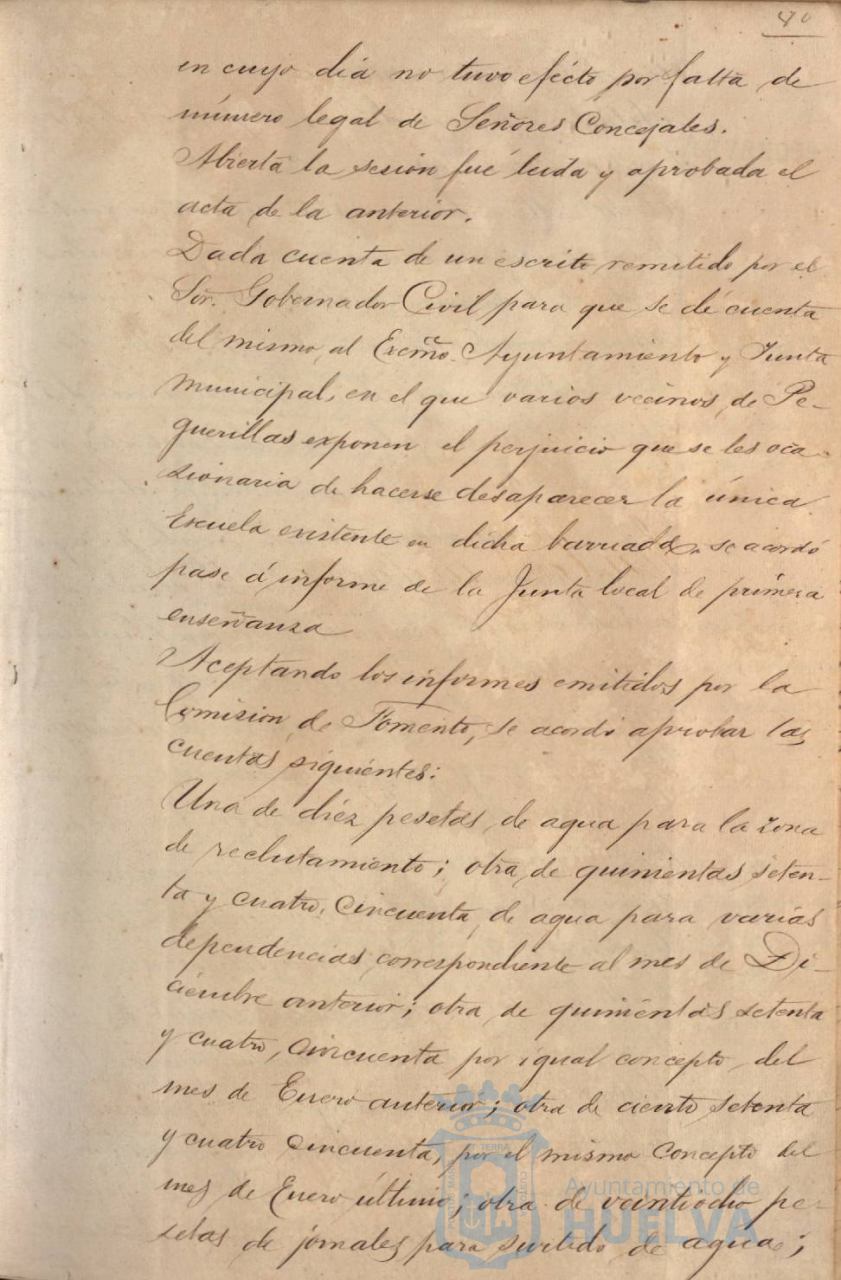 en cuyo dia no tuvo efécto por falta de
número legal de Señores Concejales.
Abierta la sesion fué leida y aprobada el
acta de la anterior.
Dada cuenta de un escrito remitido por el
Sor. Gobernador Civil para que se dé cuenta
del mismo, al Excmo. Ayuntamiento y Junta
municipal, en el que varios vecinos de Pe-
guerillas exponen el perjuicio que se les oca-
sionaria de hacerse desaparecer la única
Escuela existente en dicha barriada, se acordó
pase á informe de la Junta local de primera
enseñanza
Aceptando los informes emitidos por la
Comision de Fomento, se acordó aprobar las
cuentas siguientes:
Una de diéz pesetas, de agua para la zona
de reclutamiento; otra de quinientas seten-
ta y cuatro, cincuenta, de agua para varias
dependencias correspondiente al mes de Di-
ciembre anterior; otra de quinientas setenta
y cuatro, cincuenta por igual concepto del
mes de Enero anterior; otra de ciento setenta
y cuatro cincuenta, por el mismo concepto del
mes de Enero último; otra de veintiocho pe-
setas de jornales para surtido de agua;
Ayuntamiento de
HUELVA